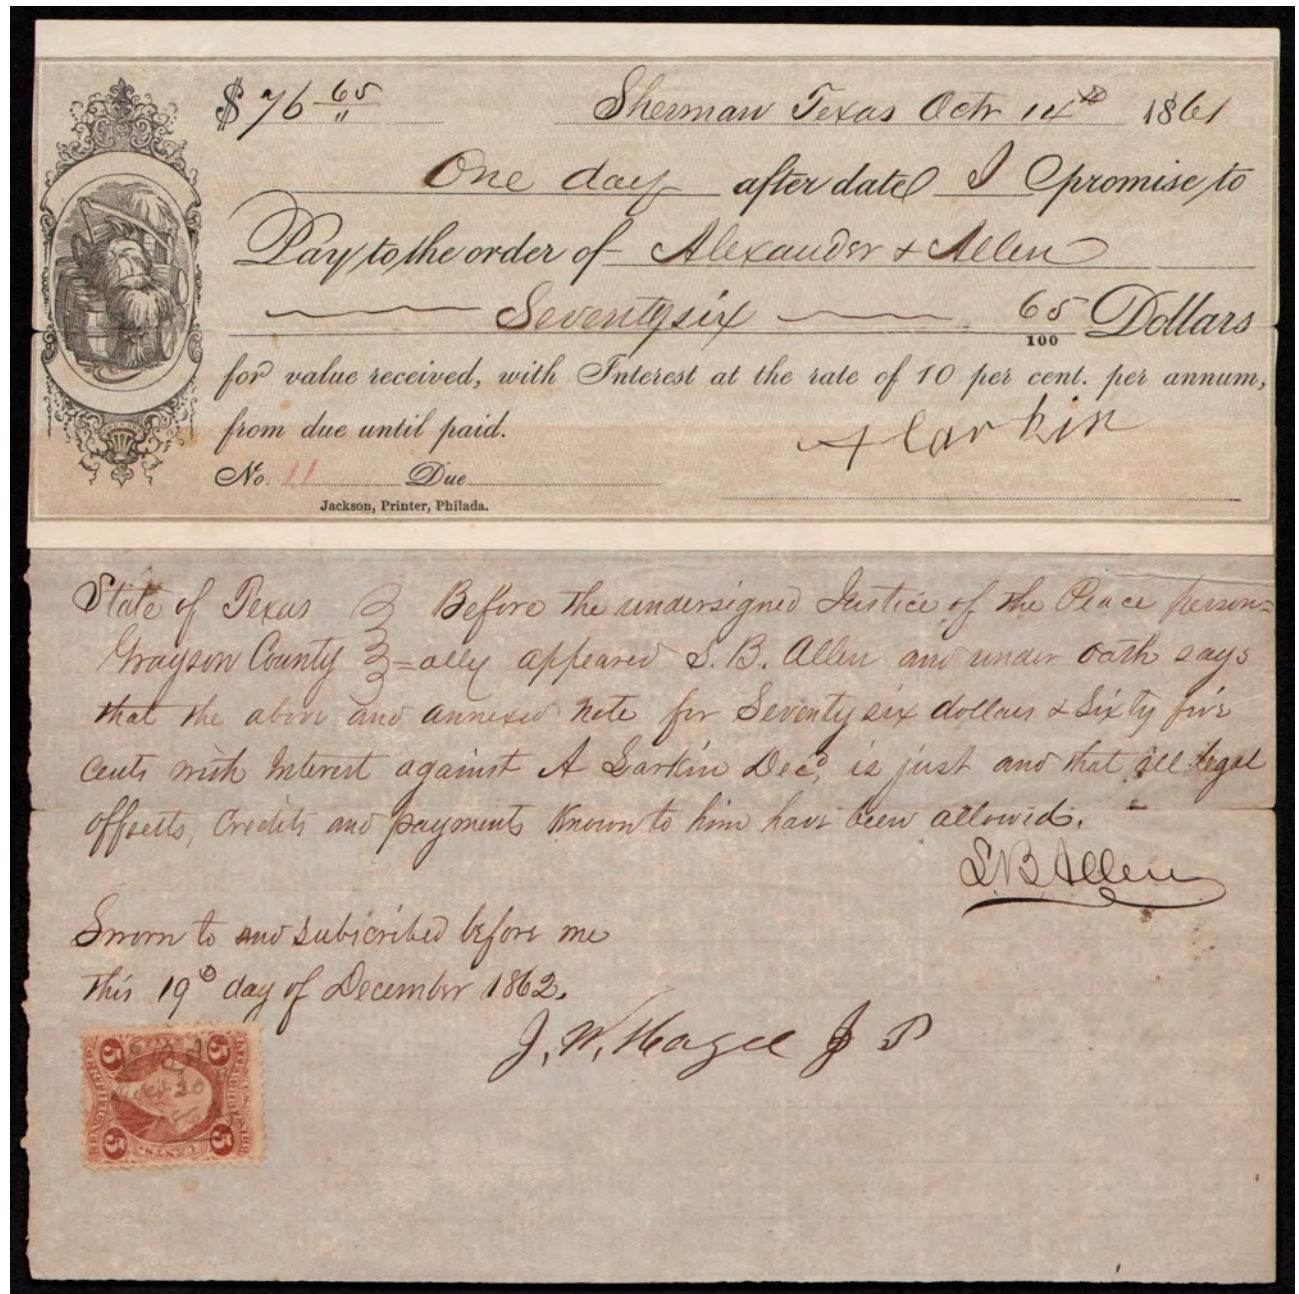 $ 76 65/" Sherman Texas Octr 14th 1861
One day after date I promise to
Pay to the order of Alexander & Allen
Seventy six 65/100 Dollars
for value received, with Interest at the rate of 10 per cent. per annum,
from due until paid. A Larkin
No. 11 Due
Jackson, Printer, Philada.
State of Texas } Before the undersigned Justice of the Peace person=
Grayson County }=ally appeared S. B. Allen and under oath says
that the above and annexed note for Seventy six dollars & Sixty five
cents with Interest against A Larkin Decd, is just and that all legal
offsetts, Credits and payments Known to him have been allowed.
S. B. Allen
Sworn to and subscribed before me
this 19th day of December 1862.
J. W. Hagee J P
5 5
CERTIFICATE
5 CENTS. 5